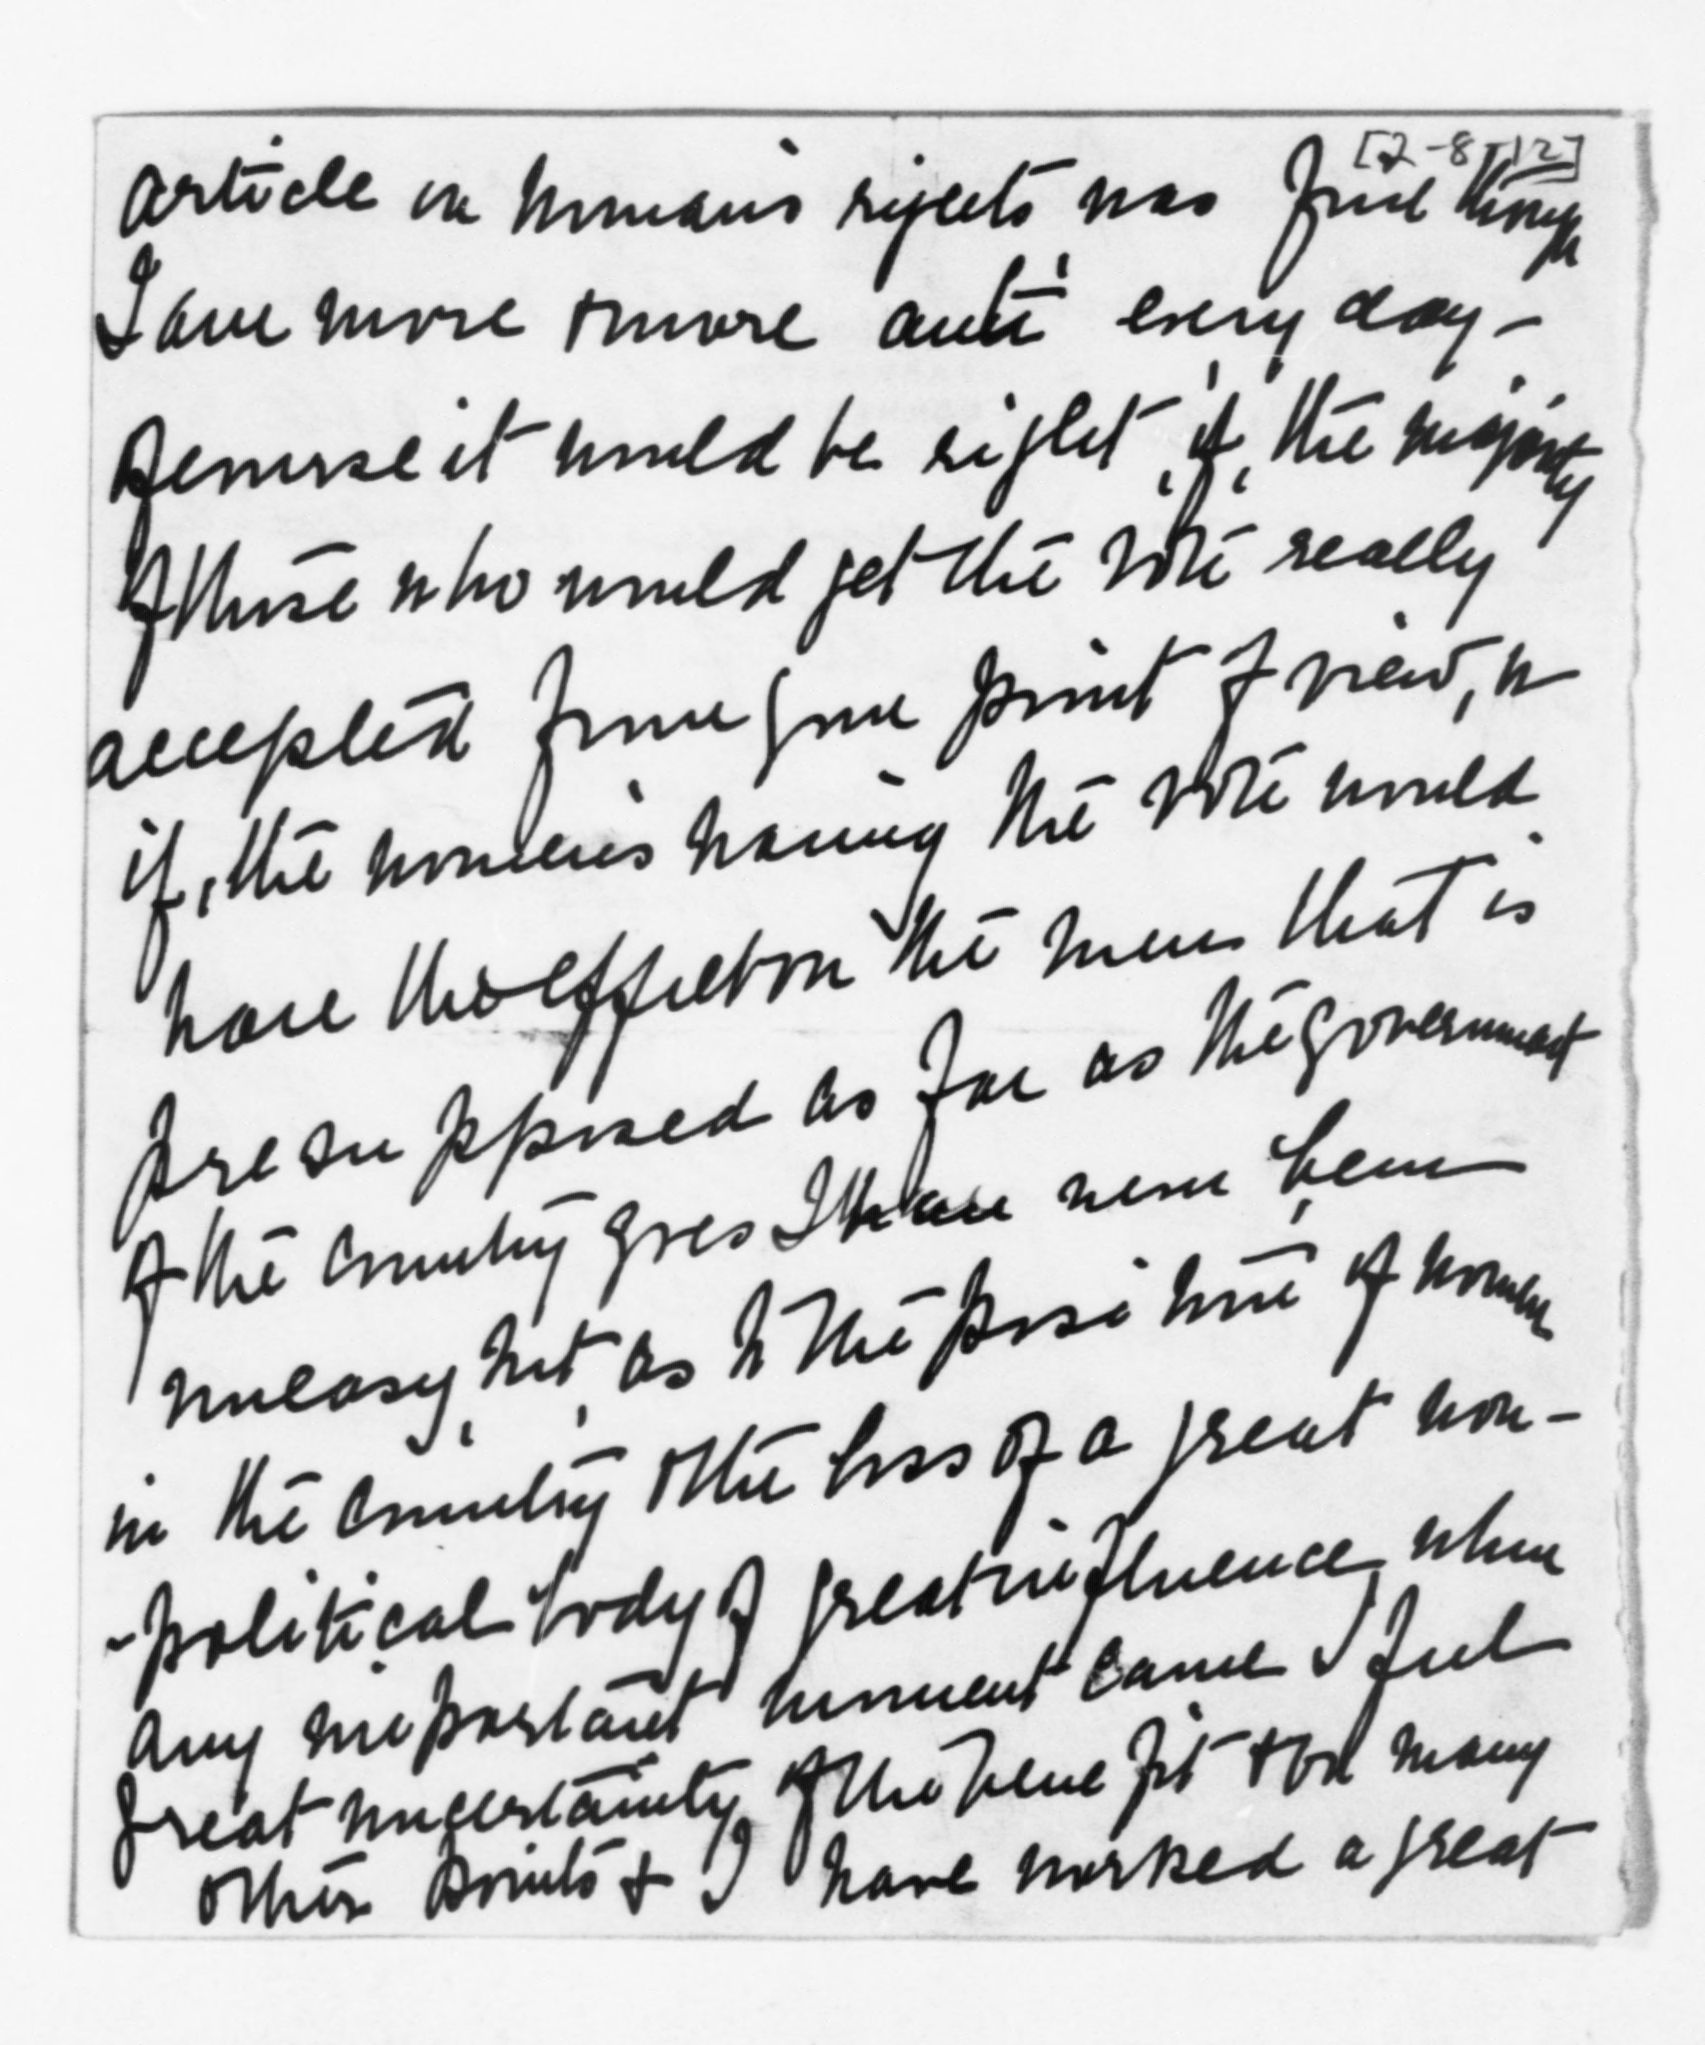 [2-8-12]
article on woman's rights was fine though
I am more & more "anti" every day -
Of course it would be right, if, the majority
of those who would get the vote really
accepted from your point of view, or
if, the women's having the vote would
have the effect on the men that is
presupposed as far as the government
of the country goes I have never been
uneasy, but, as to the position of women
in the country & the loss of a great non-
-political body of great influence when
any important moment came I feel
great uncertainty of the benefit & on many
other points & I have worked a great